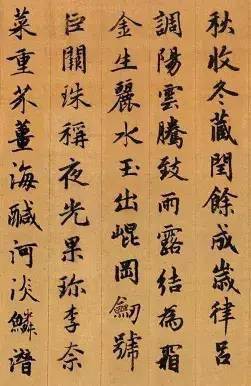 秋收冬藏閏餘成歲律呂
調陽雲騰致雨露結為霜
金生麗水玉出崐岡劒號
巨闕珠稱夜光果珍李奈
菜重芥薑海鹹河淡鱗潛